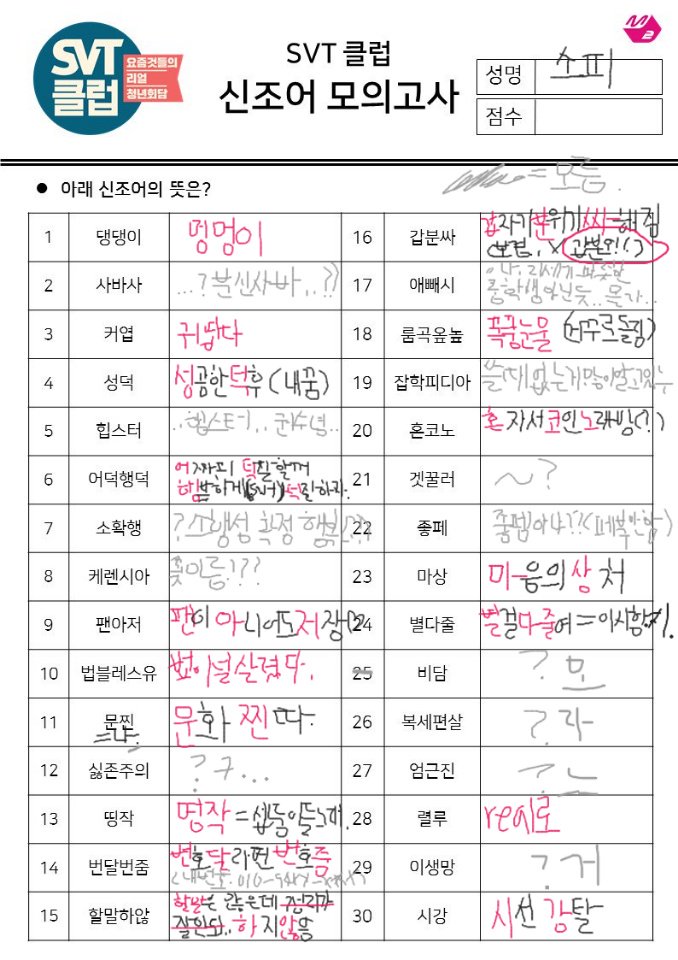 SVT 클럽
요즘것들의
리얼
청년회담
SVT 클럽
신조어 모의고사
성명 소피
점수
= 모름.
● 아래 신조어의 뜻은?
1 댕댕이 멍멍이
2 사바사 ...? 분신사바...??
3 커엽 귀엽다
4 성덕 성공한 덕후 (내꿈)
5 힙스터 ..힙스터.. 권수녕..
6 어덕행덕 어짜피 덕질할꺼
행복하게 (SVT) 덕질하자.
7 소확행 ? 소행성 확정 행복???
8 케렌시아 꽃이름!???
9 팬아저 팬이 아니어도 저장!?
10 법블레스유 법이 널 살렸다.
11 문찐 문화 찐따.
12 싫존주의 ? ㅋ...
13 띵작 명작 = 셉둥이들노래.
14 번달번줌 번호 달라면 번호줌
15 할말하않 할말은 많은데
하지않음
16 갑분싸 갑자기 분위기 싸-해짐
갑분의(?)
17 애빼시
중학생아닌듯..몰라..
18 롬곡옾눞 폭풍눈물 (거꾸로뒤집)
19 잡학피디아 쓸데없는거많이알고있누
20 혼코노 혼자서 코인노래방(?)
21 겟꿀러 ~?
22 좋페 줌펨아냐??(페북안함)
23 마상 마-음의 상처
24 별다줄 별걸다줄여 = 이시험지.
25 비담 ? 모
26 복세편살 ? 라
27 엄근진 ? 느
28 렬루 real로
29 이생망 ? 거
30 시강 시선 강탈